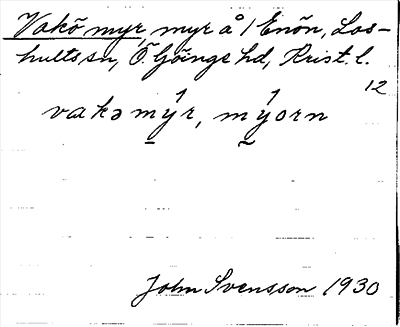 Vakö myr, myr å 1 Enön, Los-
hults sn, Ö. Göinge hd, Krist. l.
12
vakə mýr, mýorn
John Svensson 1930